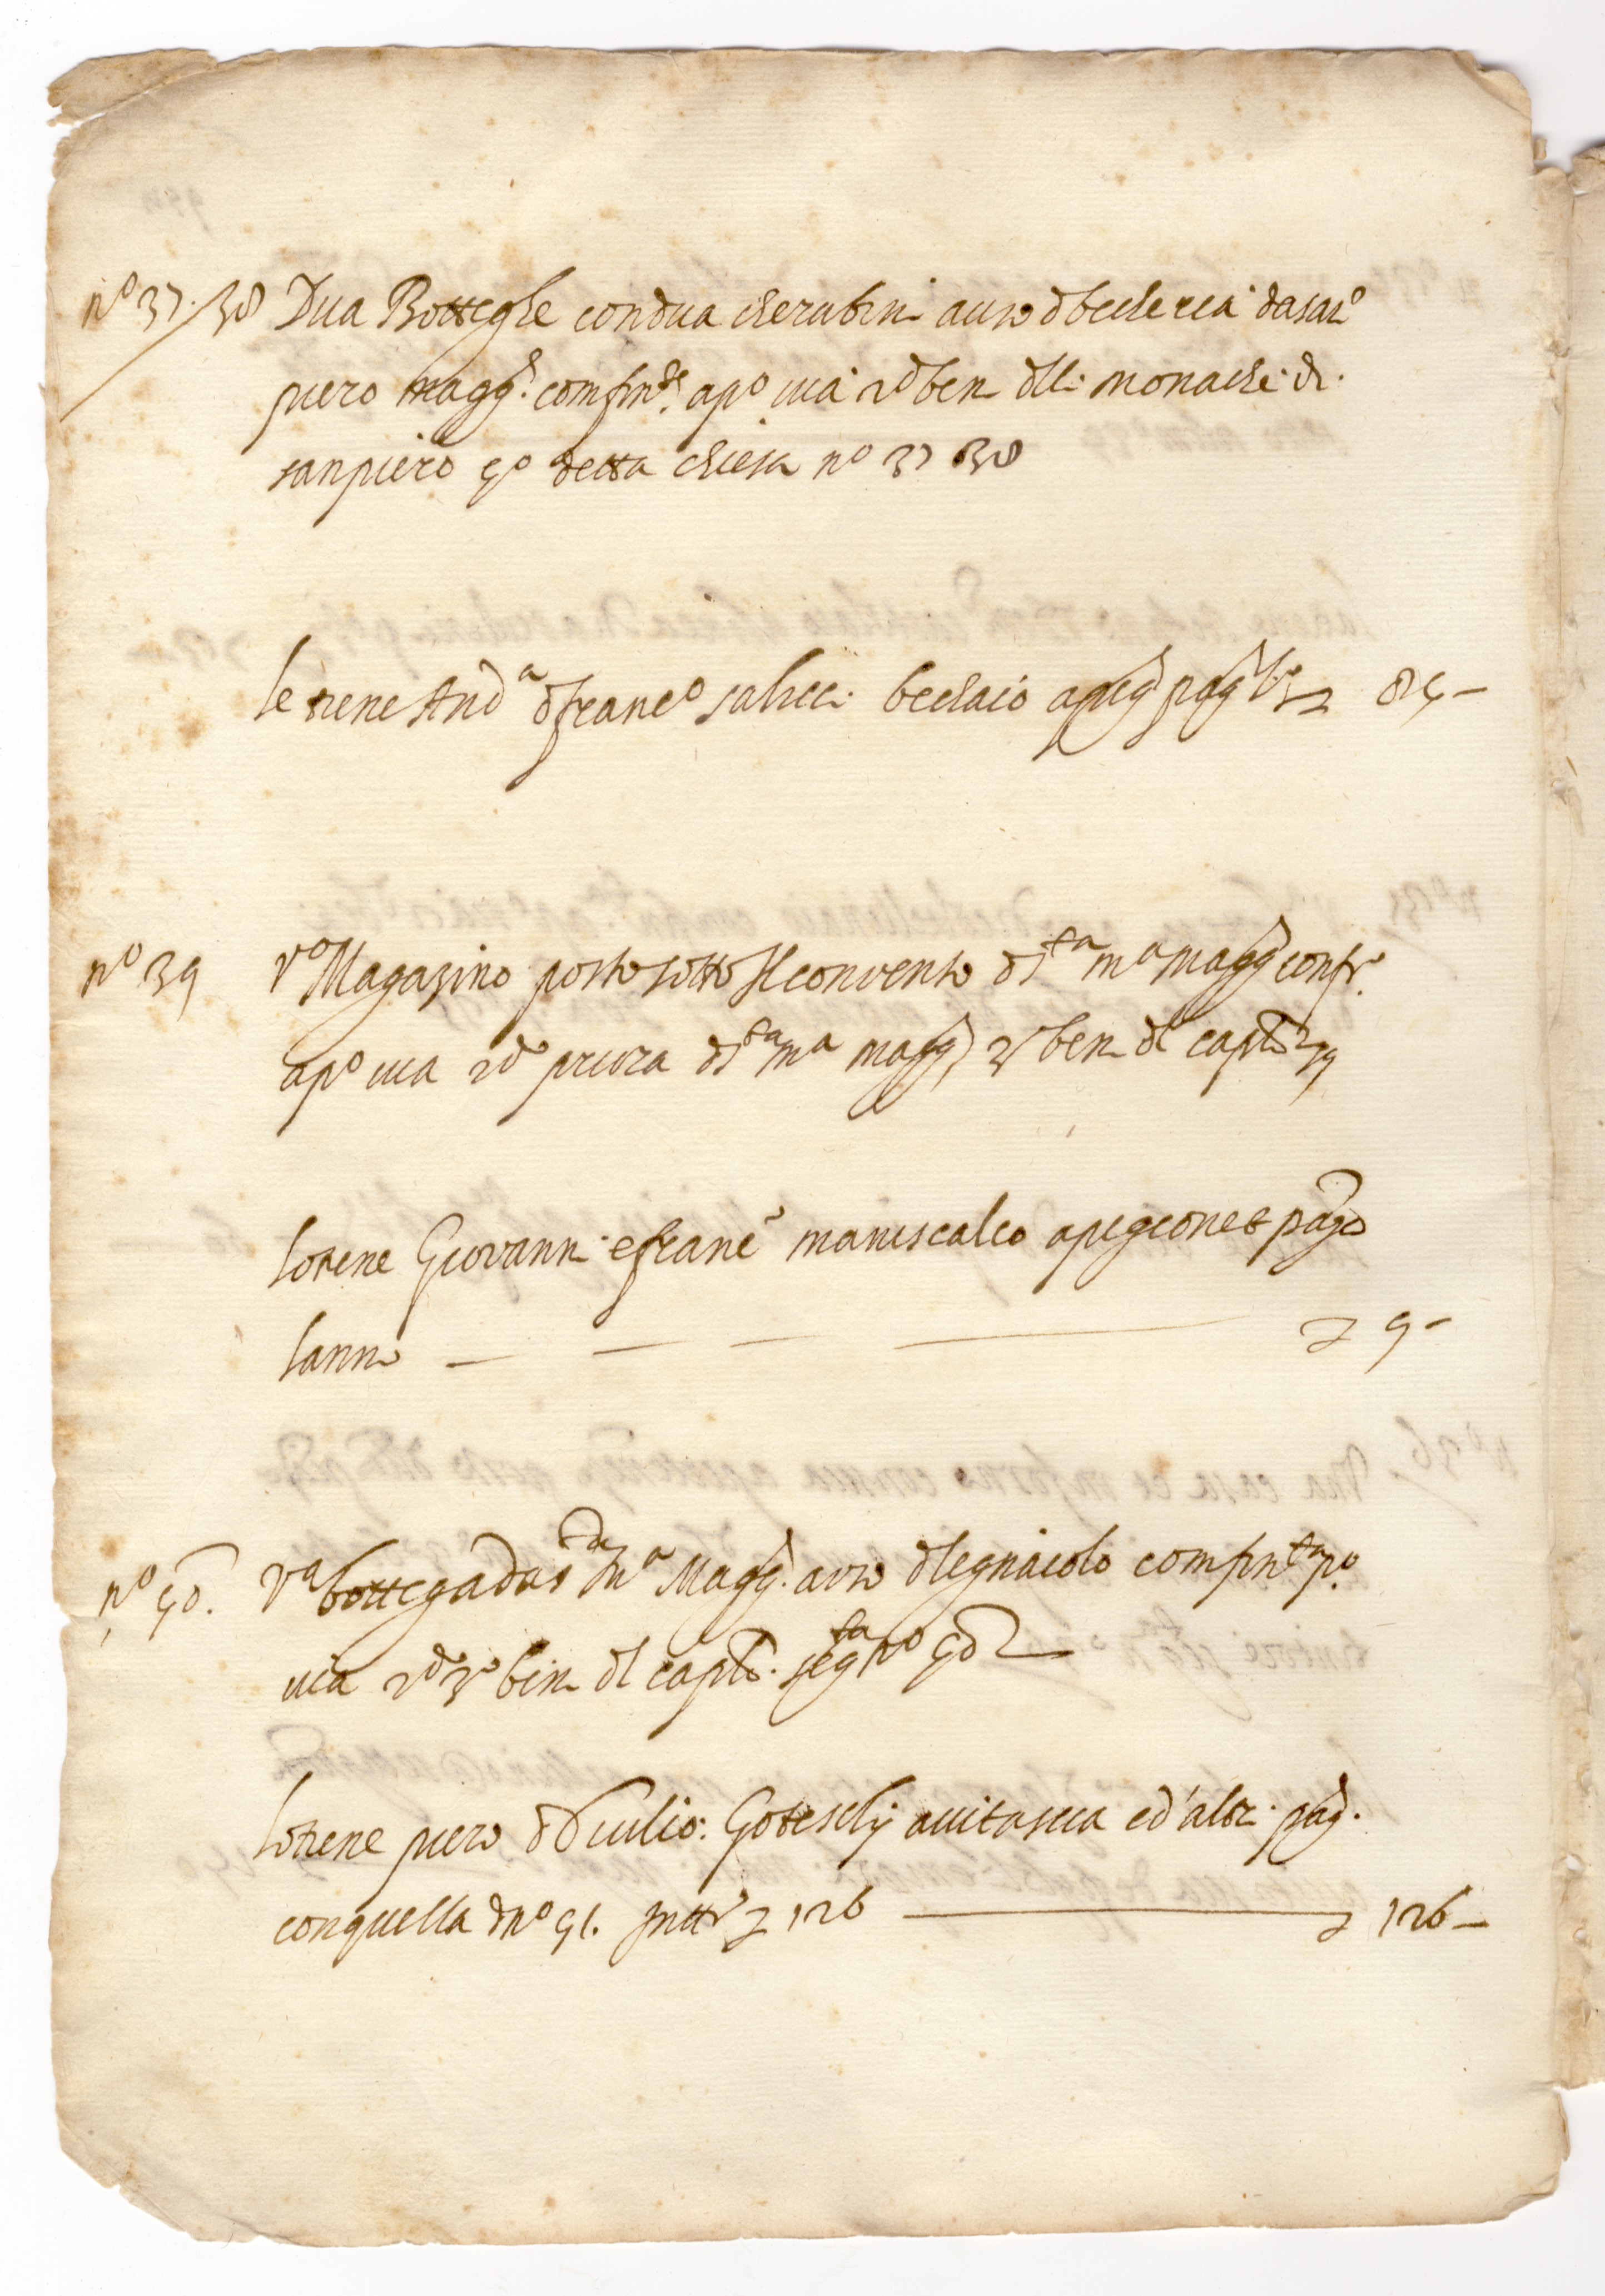 nº 37. 38 Dua Botteghe condua cherubini auso dbecheria dasan
piero magg.e confin.te apº uia 2º beni dlle monache di
sanpiero 4º detta chiesa nº 37 38
le tiene And.a dfrancº salucci beccaio apig.
84 –
nº 39 Vº Magazino posto sotto Il convento di s.ta m.a magg. conf.
apº uia 2º priora di s.ta m.a magg. 3º beni dl capto 39
lotiene Giovanni e franc.º maniscalco apigione e paga
lanno — — — — 9 –
nº 40. V.a bottega da s.ta M.a Magg. auso dlegnaiolo compin.ta pº
uia 2º 3º beni dl capto. seg.ta nº 40
lotiene piero di Giulio: Goteschi auitasua ed'altri pag.
conquella dnº 41. 126 — 126 –